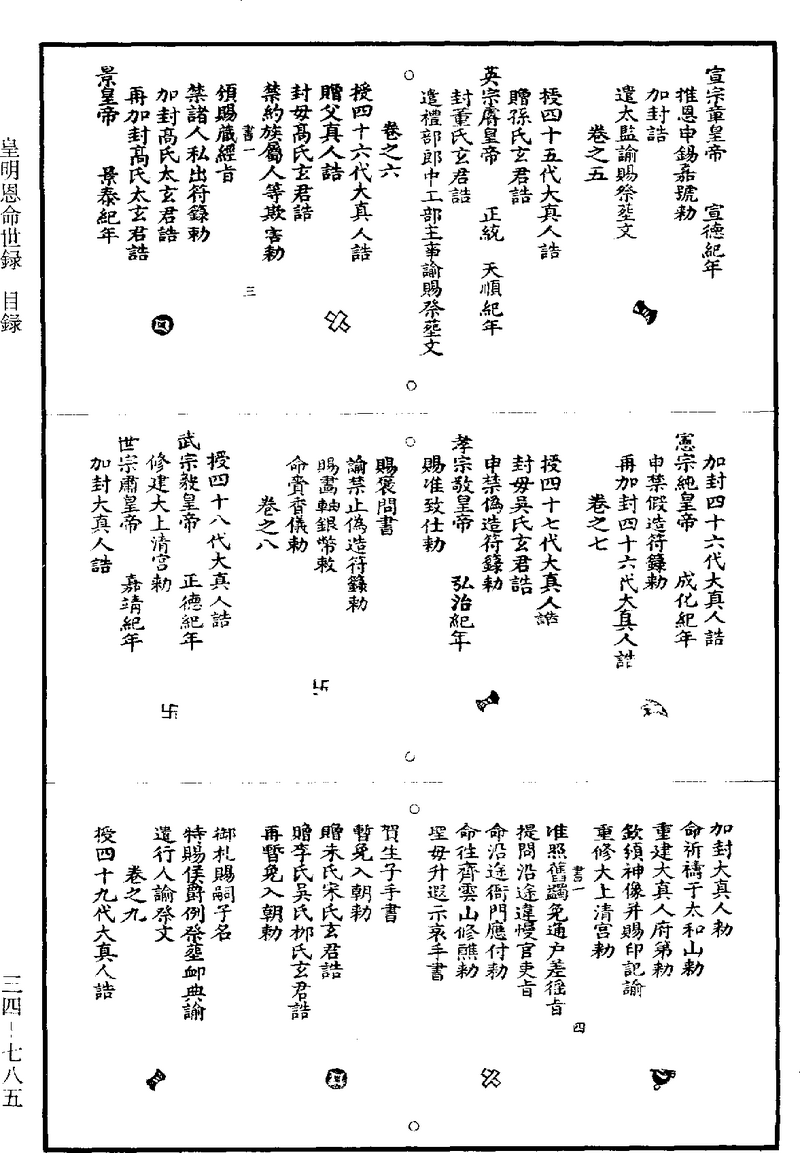 宣宗章皇帝　宣德紀年
推恩申錫嘉號勅
加封誥
遣太監諭賜祭塟文
卷之五
授四十五代大真人誥
贈孫氏玄君誥
英宗睿皇帝　正統　天順紀年
封董氏玄君誥
遣禮部郎中工部主事諭賜祭塟文
卷之六
授四十六代大真人誥
贈父真人誥
封母高氏玄君誥
禁約族屬人等欺害勅
書一　三
領賜藏經旨
禁諸人私出符籙勅
加封高氏太玄君誥
再加封高氏太玄君誥
景皇帝　景泰紀年
加封四十六代大真人誥
憲宗純皇帝　成化紀年
申禁假造符籙勅
再加封四十六代大真人誥
卷之七
授四十七代大真人誥
封母吳氏玄君誥
申禁偽造符籙勅
孝宗敬皇帝　弘治紀年
賜准致仕勅
賜褒問書
諭禁止偽造符籙勅
賜畫軸銀幣敕
命賫香儀勅
卷之八
授四十八代大真人誥
武宗毅皇帝　正德紀年
修建大上清宮勅
世宗肅皇帝　嘉靖紀年
加封大真人誥
加封大真人勅
命祈禱于太和山勅
重建大真人府第勅
欽頒神像并賜印記諭
重修大上清宮勅
書一　四
准照舊蠲免通户差徭旨
提問沿途違慢官吏旨
命沿途衙門應付勅
命徃齊雲山修醮勅
聖母升遐示哀手書
賀生子手書
暫免入朝勅
贈朱氏宋氏玄君誥
贈李氏吳氏栁氏玄君誥
再暫免入朝勅
御札賜嗣子名
特賜侯爵例祭塟卹典諭
遣行人諭祭文
卷之九
授四十九代大真人誥
皇明恩命世録　目録
三四-七八五